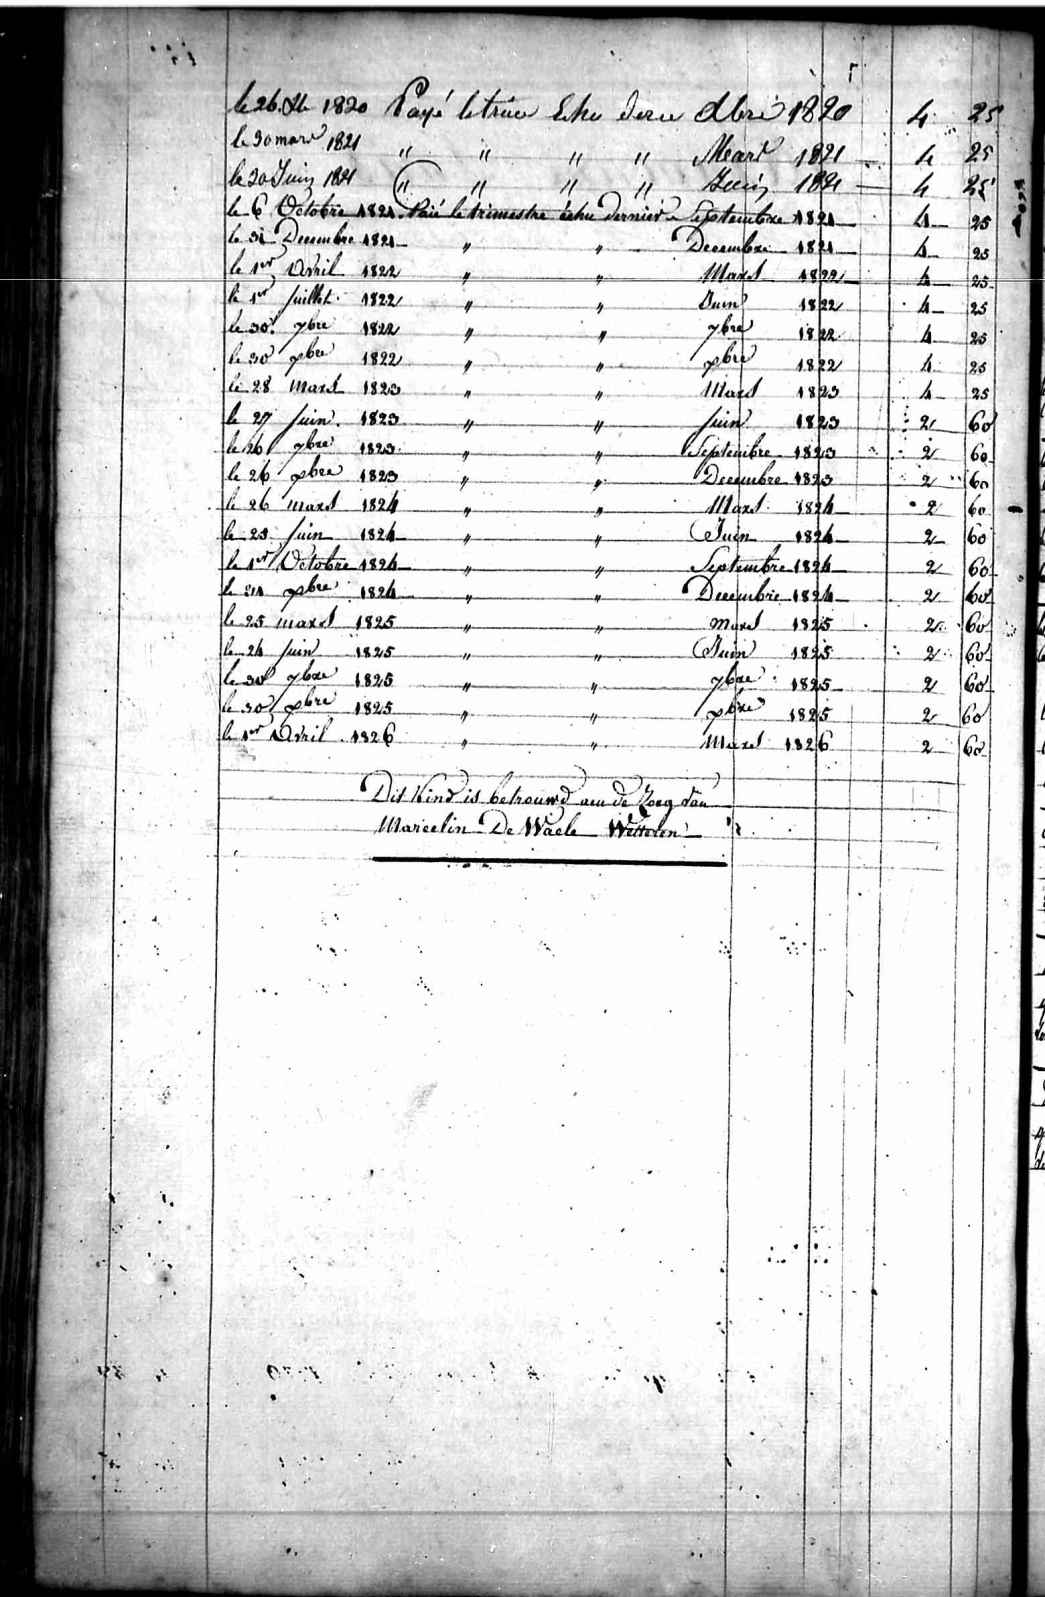 le 26 Xb 1820 Payé le trim Echu derni Xbre 1820 4 25
le 30 mars 1821 " " " " Mart 1821 — 4 25
le 20 Juin 1821 " " " " Juin 1821 — 4 25
le 6 Octobre 1821. Paié le trimestre échu dernier Septembre 1821 4 25
le 31 Decembre 1821 " " Decembre 1821 4 25
le 1er Avril 1822 " " Mars 1822 4 25
le 1er Juillet 1822 " " Juin 1822 4 25
le 30 7bre 1822 " " 7bre 1822 4 25
le 30 Xbre 1822 " " Xbre 1822 4 25
le 28 Mars 1823 " " Mars 1823 4 25
le 27 Juin 1823 " " Juin 1823 2 60
le 26 7bre 1823 " " Septembre 1823 2 60
le 26 Xbre 1823 " " Decembre 1823 2 60
le 26 mars 1824 " " Mars 1824 2 60
le 23 Juin 1824 " " Juin 1824 2 60
le 1er Octobre 1824 " " Septembre 1824 2 60
le 31 Xbre 1824 " " Decembre 1824 2 60
le 25 mars 1825 " " Mars 1825 2 60
le 24 Juin 1825 " " Juin 1825 2 60
le 30 7bre 1825 " " 7bre 1825 2 60
le 30 Xbre 1825 " " Xbre 1825 2 60
le 1er Avril 1826 " " Mars 1826 2 60
Dit Kind is betrouwd aen de Zorg van
Marcelin De Waele Wetteren